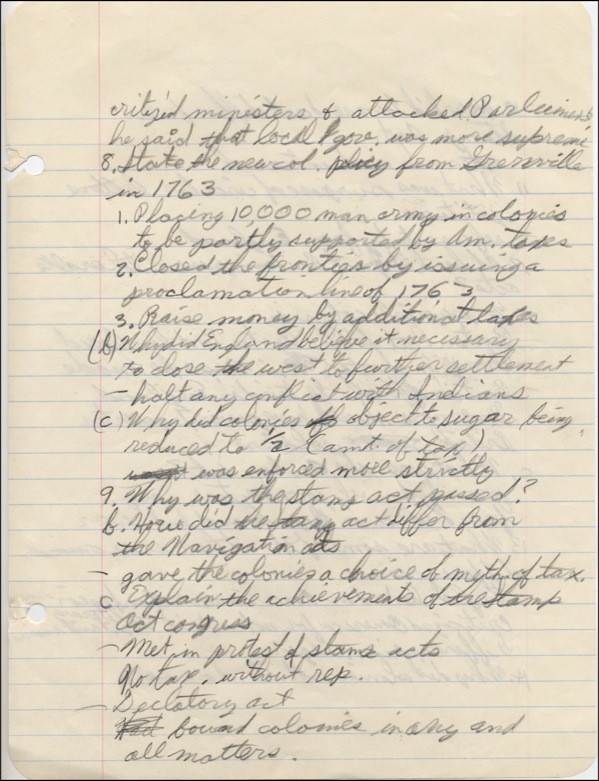 critized ministers & attacked Parliment
he said that local gov. was more supreme
8. State the new col. policy from Grenville
in 1763
1. Placing 10,000 man army in colonies
to be partly supported by Am. taxes
2. Closed the frontier by issuing a
proclamation line of 1763
3. Raise money by additional taxes
(b) Why did England believe it necessary
to close the west to further settlement
- halt any conflict with Indians
(c) Why did colonies object to sugar being
reduced to 1/2 (amt. of tax)
was enforced more strictly
9. Why was the stamp act passed?
b. How did the stamp act differ from
the Navigation acts
- gave the colonies a choice of meth. of tax.
c Explain the achievements of the stamp
act congress
- Met in protest of stamp acts
No tax. without rep.
- Declatory act
bound colonies in any and
all matters.